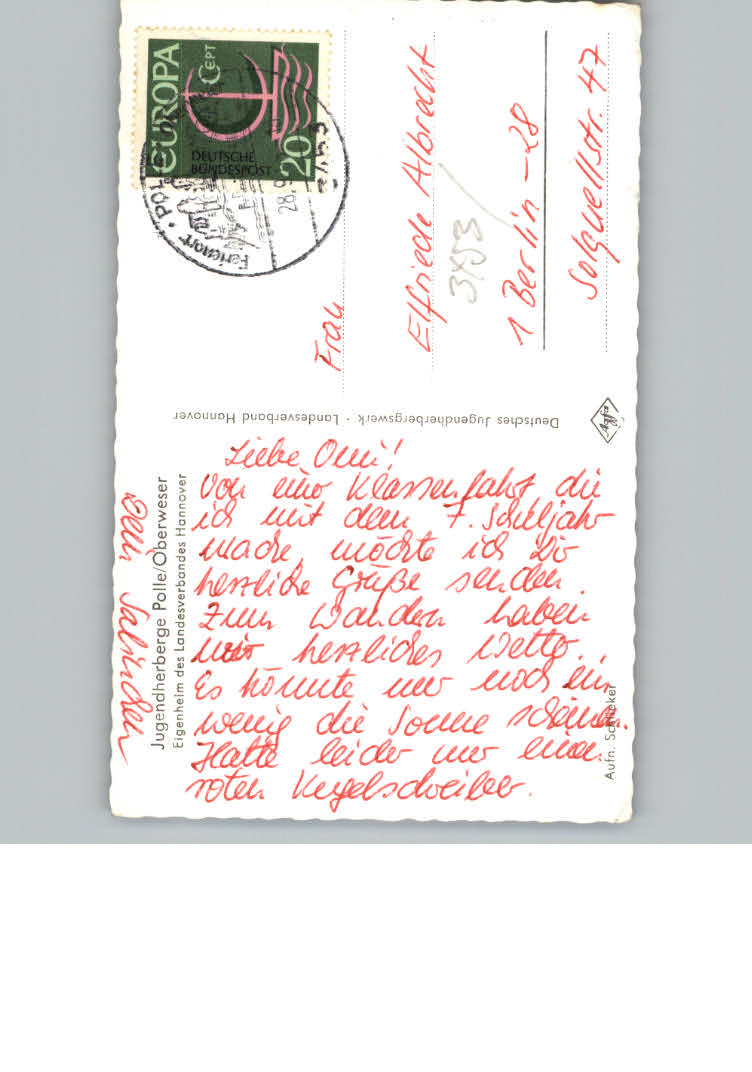 Liebe Omi!
Von einer Klassenfahrt die
ich mit dem 7. Schuljahr
mache, möchte ich Dir
herzliche Grüße senden.
Zum Wandern haben
wir herrliches Wetter.
Es könnte nur noch ein
wenig die Sonne scheinen.
Hatte leider nur einen
roten Kugelschreiber.
Dein
Jugendherberge Polle/Oberweser
Eigenheim des Landesverbandes Hannover
Aufn. Schlieker
Deutsches Jugendherbergswerk · Landesverband Hannover
Agfa
Frau
Elfriede Albrecht
1 Berlin-28
Solquellstr. 47
3453
EUROPA
CEPT
DEUTSCHE
BUNDESPOST
20
Ferienort · POLLE
28.9